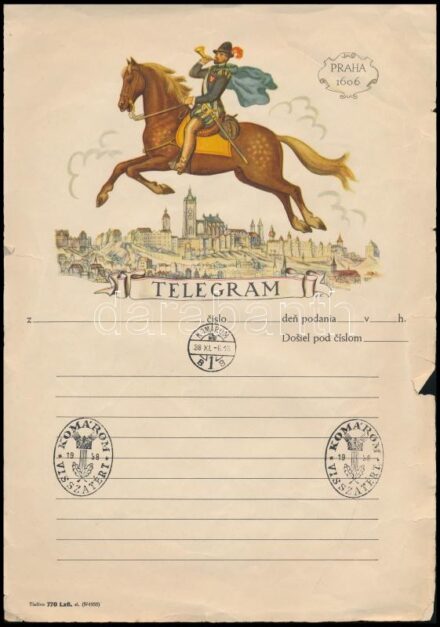 PRAHA
1606
TELEGRAM
z číslo deň podania v h.
Došiel pod číslom
KOMÁROM
38 XI. -6. 18
KOMÁROM
19 38
VISSZATÉRT
KOMÁROM
19 38
VISSZATÉRT
darabanth
Tlačivo 770 Lx6,